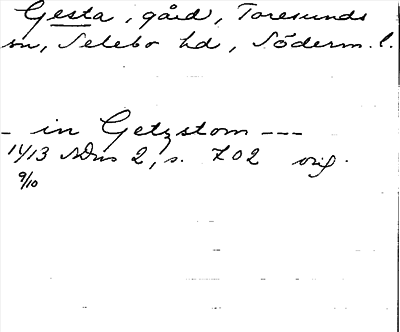 Gesta, gård, Toresunds
sn, Selebo hd, Söderm. l.
- in Getzstom ---
1413 SDns 2, s. 702 orig.
9/10